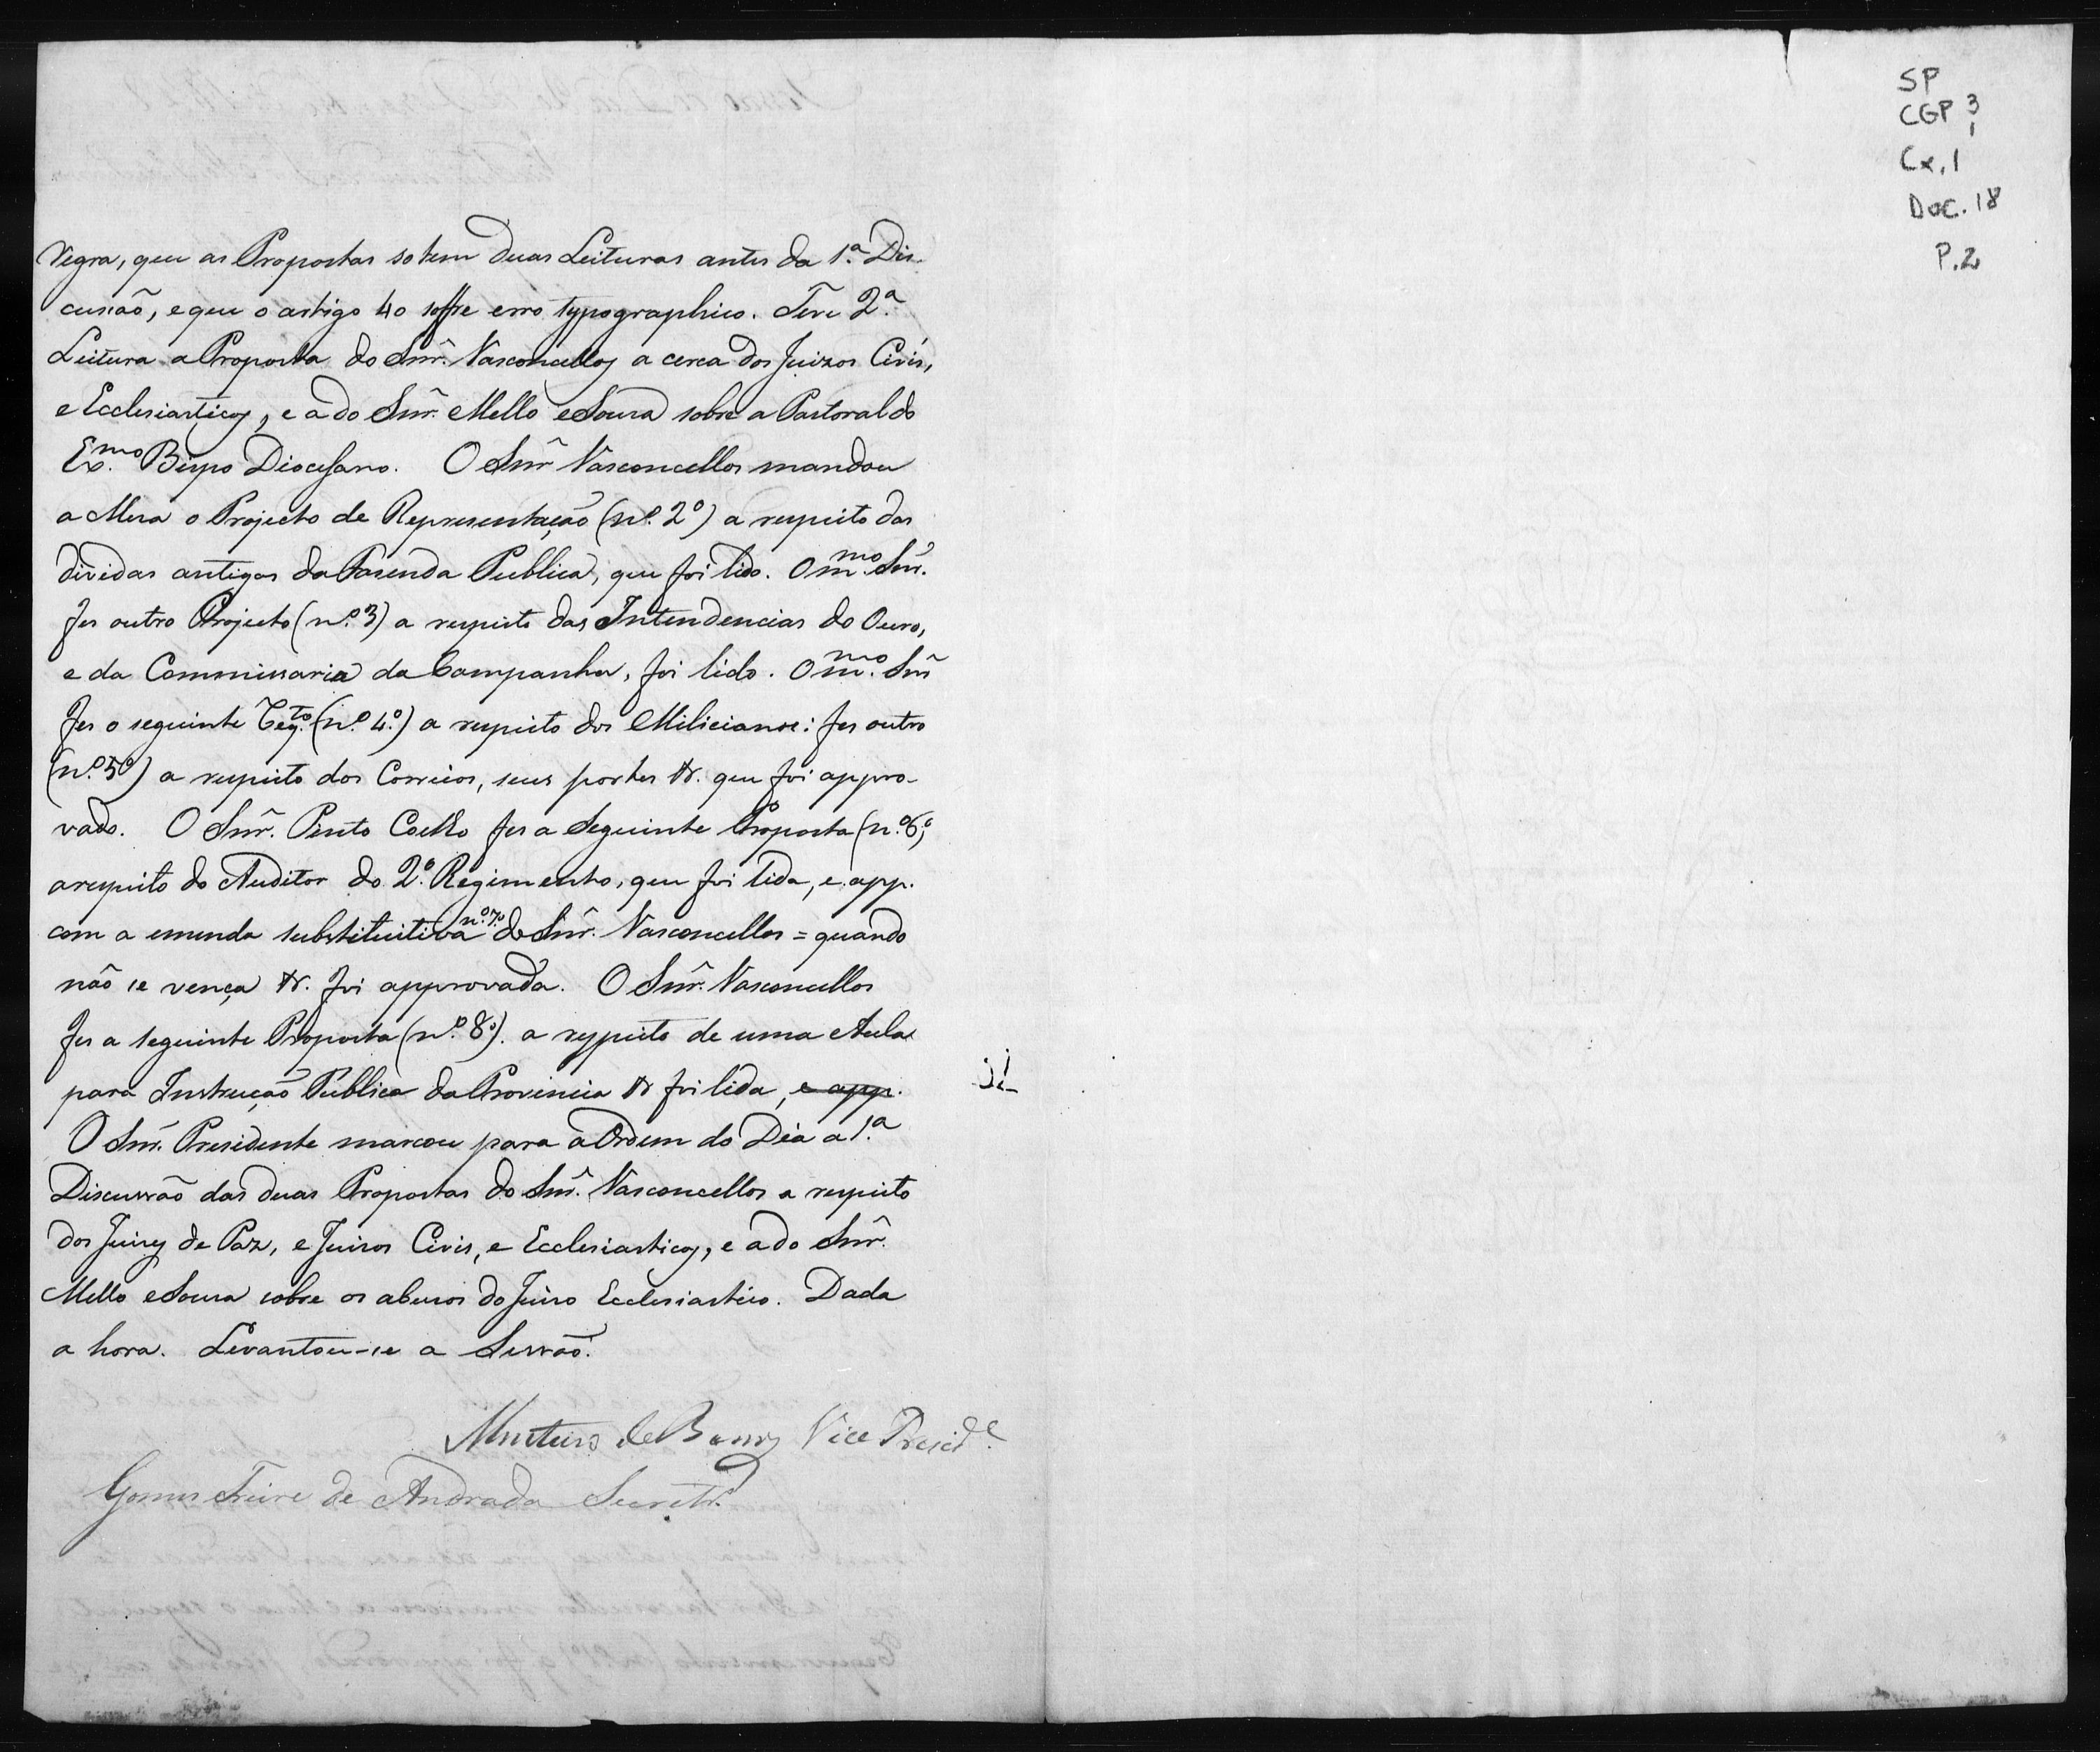 regra, que as Propostas so tem duas Leituras antes da 1.ª Dis-
cussaõ, e que o artigo 40 soffre erro typographico. Teve 2.ª
Leitura a Proposta do Snr. Vasconcellos a cerca dos Juizos Civis,
e Ecclesiasticos, e a do Snr. Mello e Souza sobre a Pastoral do
Ex.mo Bispo Diocesano. O Snr Vasconcellos mandou
a Mesa o Projecto de Representaçaõ (n.º 2º) a respeito das
dividas antigas da Fasenda Publica, que foi lido. O m.mo Snr.
fes outro Projecto (n.º 3) a respeito das Intendencias do Ouro,
e da Commissaria da Campanha, foi lido. O m.mo Snr
fes o seguinte Req.to (n.º 4.º) a respeito dos Milicianos: fes outro
(n.º 5º) a respeito dos Correios, seus portes &. que foi appro-
vado. O Snr. Pinto Coelho fes a seguinte Proposta (n.º 6.º
a respeito do Auditor do 2.º Regimento, que foi lida, e app.
com a emenda substituitiva n.º 7º do Snr. Vasconcellos = quando
não se vença &. foi approvada. O Snr. Vasconcellos
fes a seguinte Proposta (n.º 8º). a respeito de uma Aula
para Instrucçaõ Publica da Provincia & foi lida, e app.
O Snr. Presidente marcou para a Ordem do Dia a 1.ª
Discussão das duas Propostas do Snr. Vasconcellos a respeito
dos Juizes de Paz, e Juizos Civis, e Ecclesiasticos, e a do Snr.
Mello e Souza sobre os abusos do Juizo Ecclesiastico. Dada
a hora. Levantou-se a Sessaõ.
Monteiro de Barros Vice Presid.e
Gomes Freire de Andrada Secretr.º
SP
CGP 3
1
Cx. 1
Doc. 18
P. 2